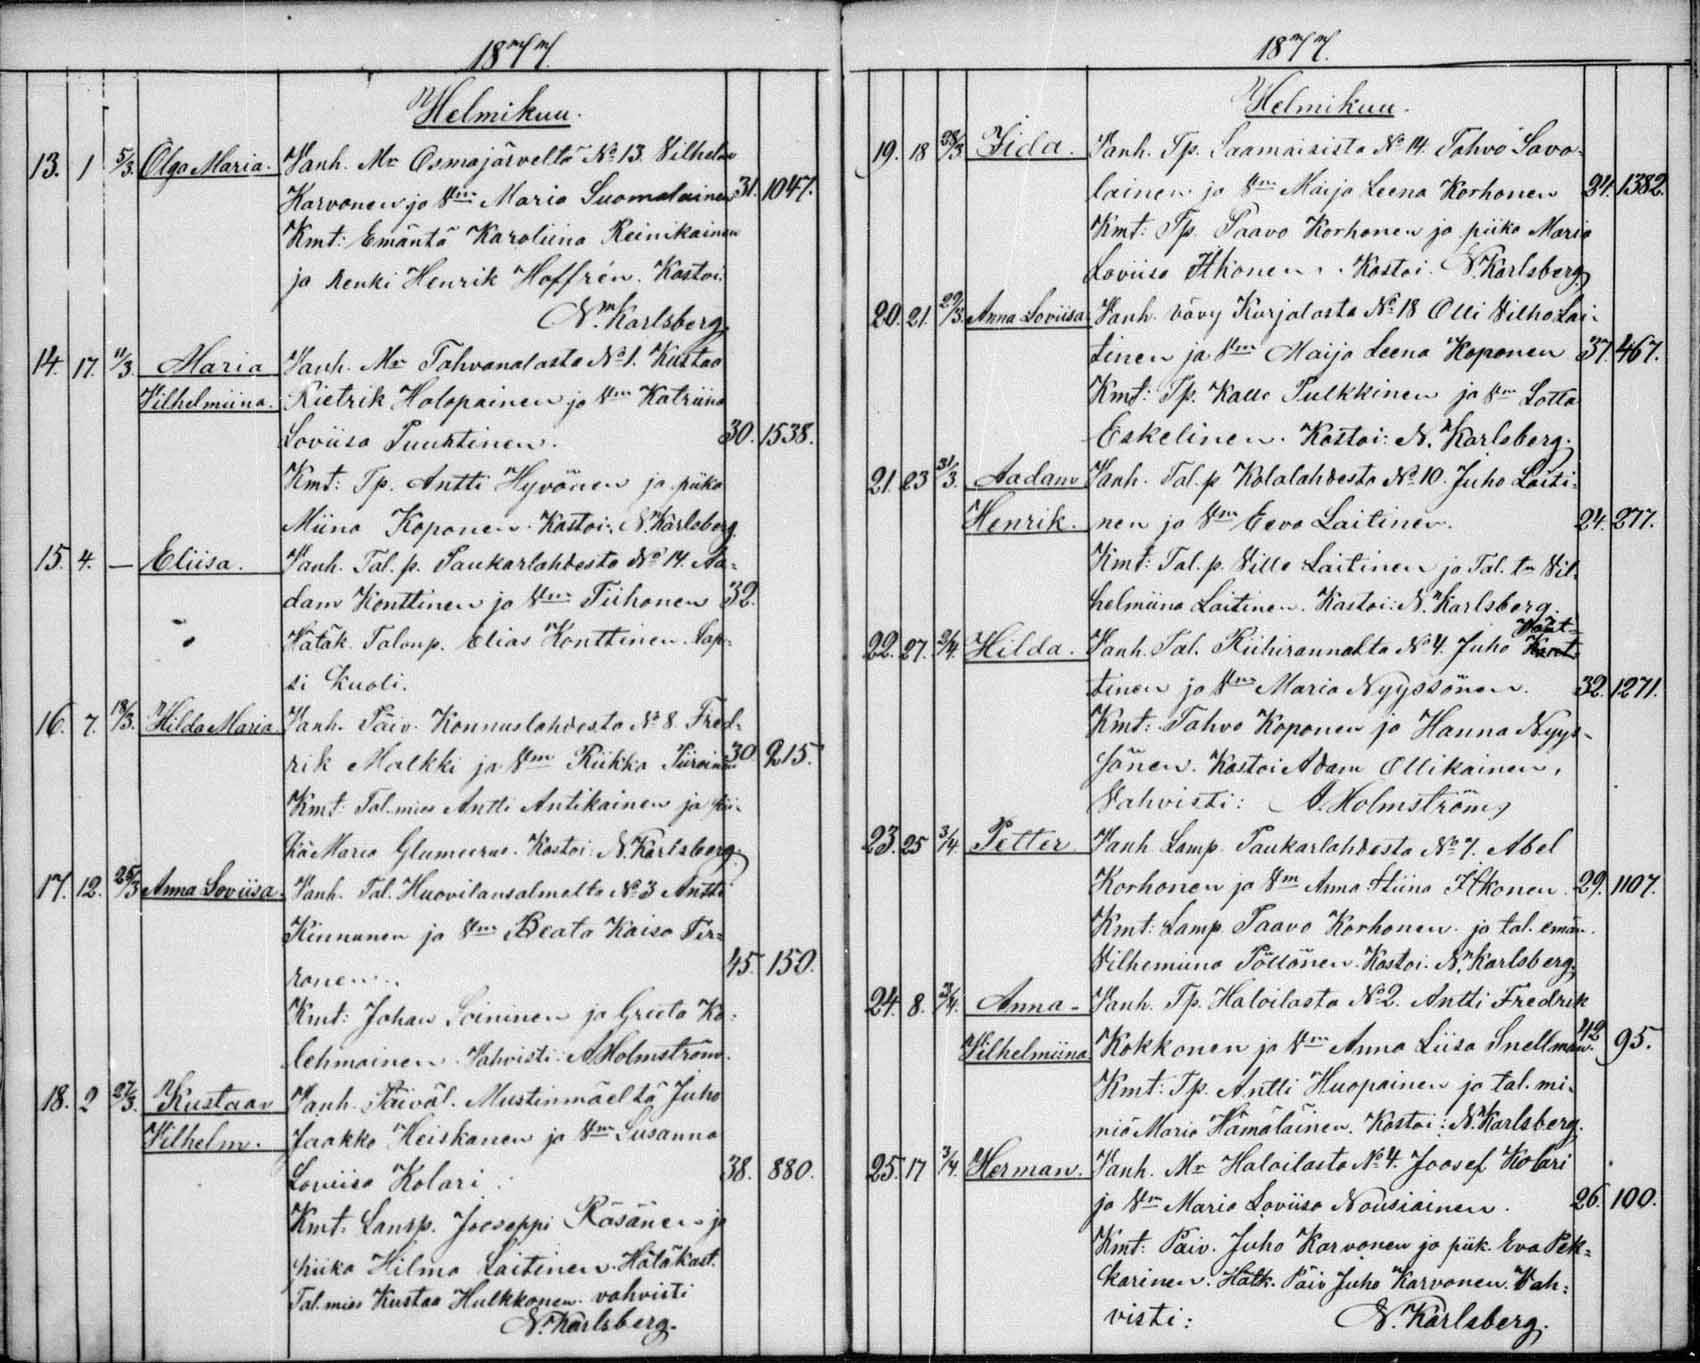 1877.
Helmikuu.
13. 1 5/3. Olga Maria. Vanh. Mr Osmajärveltä No 13. Vilhelm
Karvonen ja Vm Maria Suomalainen 31. 1047.
Kmt: Emäntä Karoliina Reinikainen
ja Renki Henrik Hoffrén. Kastoi:
N. Karlsberg.
14. 17. 11/3. Maria Vanh. Mr Tahvanalasta No 1. Kustaa
Vilhelmiina. Rietrik Holopainen ja Vm Katriina
Loviisa Puurtinen. 30. 1538.
Kmt: Tp. Antti Hyvönen ja piika
Miina Koponen. Kastoi: N. Karlsberg.
15. 4. — Eliisa. Vanh. Tal. p. Paukarlahdesta No 14. Aa-
dam Konttinen ja Vm Tiihonen 32.
Hätäk. Talonp. Elias Konttinen. Lap-
si kuoli.
16. 7. 18/3. Hilda Maria. Vanh. Päiv. Konnuslahdesta No 8. Fred-
rik Malkki ja Vm Riikka Piiroinen 30 215.
Kmt: Tal. mies Antti Antikainen ja pii-
ka Maria Glumerus. Kastoi: N. Karlsberg.
17. 12. 25/3 Anna Loviisa. Vanh. Tal. Huovilansalmelta No 3 Antti
Kinnunen ja Vm Beata Kaisa Tir-
ronen. 45. 150.
Kmt: Johan Soininen ja Greeta Ko-
lehmainen. Vahvisti: A Holmström.
18. 2 27/3. Kustaav Vanh. Päiväl. Mustinmäeltä Juho
Vilhelm. Jaakko Heiskanen ja Vm Susanna
Loviisa Kolari. 38. 880.
Kmt: Lamp. Jooseppi Räsänen ja
piika Hilma Laitinen. Hätäkast.
Tal. mies Kustaa Hulkkonen. vahvisti
N. Karlsberg.
1877.
Helmikuu.
19. 18 28/3 Iida. Vanh. Tp. Saamaisista No 14. Tahvo Savo-
lainen ja Vm Maija Leena Korhonen 24. 1382.
Kmt: Tp. Paavo Korhonen ja piika Maria
Loviisa Itkonen. Kastoi. N. Karlsberg.
20. 21. 29/3. Anna Loviisa Vanh. vävy Kurjalasta No 18 Olli Vilho Lai-
tinen ja Vm Maija Leena Koponen 37. 467.
Kmt: Tp. Kalle Pulkkinen ja Vm Lotta
Eskelinen. Kastoi: N. Karlsberg.
21. 23 31/3. Aadam Vanh. Tal. p. Kolalahdesta No 10. Juho Laiti-
Henrik. nen ja Vm Eeva Laitinen. 24. 277.
Kmt: Tal. p. Ville Laitinen ja Tal. tr Vil-
helmiina Laitinen. Kastoi: N. Karlsberg.
22. 27. 2/4. Hilda. Vanh. Tal. Riihirannalta No 4. Juho
tinen ja Vm Maria Nyyssönen. 32. 1271.
Kmt: Tahvo Koponen ja Hanna Nyys-
sönen. Kastoi Adam Ollikainen,
Vahvisti: A. Holmström,
23. 25 3/4. Petter Vanh. Lamp. Paukarlahdesta No 7. Abel
Korhonen ja Vm Anna Stiina Itkonen. 29. 1107.
Kmt: Lamp. Paavo Korhonen ja tal. emän.
Vilhemiina Pöllönen. Kastoi. N. Karlsberg.
24. 8. 3/4. Anna- Vanh. Tp. Haloilasta No 2. Antti Fredrik
Vilhelmiina Kokkonen ja Vm Anna Liisa Snellman. 42 95.
Kmt: Tp. Antti Huopainen ja tal. mi-
niä Maria Hämäläinen. Kastoi: N. Karlsberg.
25. 17 3/4. Herman. Vanh. Mr Haloilasta No 4. Joosef Kolari
ja Vm Maria Loviisa Nousiainen. 26. 100.
Kmt: Päiv. Juho Karvonen ja piik. Eva Pek-
karinen. Hätk. Päiv Juho Karvonen. Vah-
visti: N. Karlsberg.